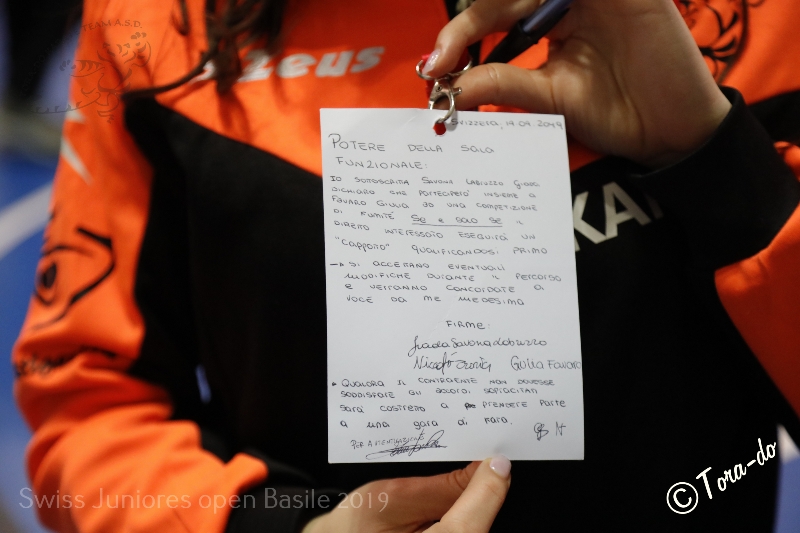 TEAM A.S.D.
Zeus
KA
Svizzera, 14.04.2019
POTERE DELLA SOLA
FUNZIONALE:
IO SOTTOSCRITTA SAVONA LABIUZZO
DICHIARO CHE PARTECIPERÒ INSIEME A
FAVARO GIULIA AD UNA COMPETIZIONE
DI FUMITÉ SE E SOLO SE IL
DIRETTO INTERESSATO ESEGUIRÀ UN
"CAPPOTTO" QUALIFICANDOSI PRIMO
→ SI ACCETTANO EVENTUALI
MODIFICHE DURANTE IL PERCORSO
E VERRANNO CONCORDATE A
VOCE DA ME MEDESIMA
FIRME:
Giulia Favaro
QUALORA IL CONTRAENTE NON DOVESSE
SODDISFARE GLI ACCORDI SOPRACITATI
SARÀ COSTRETTO A PRENDERE PARTE
A UNA GARA DI KATA.
PER
Swiss Juniores open Basile 2019
© Tora-do